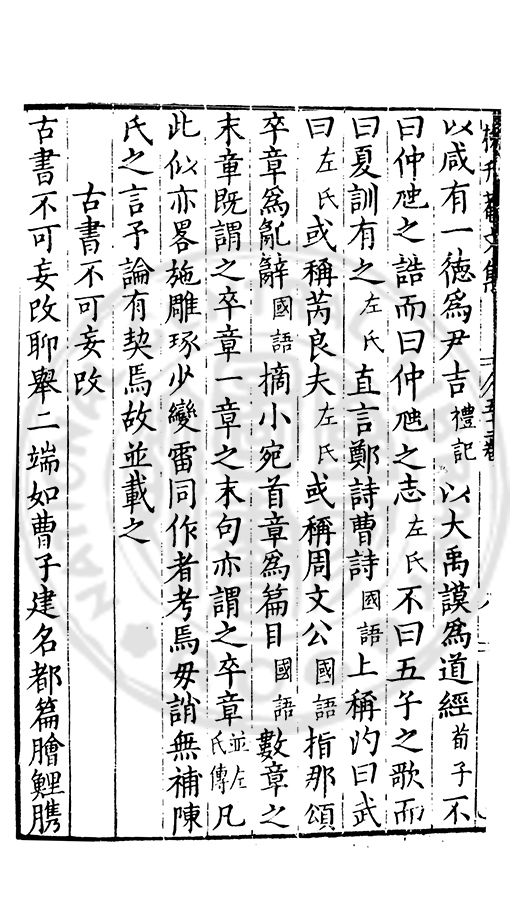 以咸有一德爲尹吉禮記以大禹謨爲道經荀子不
曰仲虺之誥而曰仲虺之志左氏不曰五子之歌而
曰夏訓有之左氏直言鄭詩曹詩國語上稱汋曰武
曰左氏或稱芮良夫左氏或稱周文公國語指那頌
卒章爲亂辭國語摘小宛首章爲篇目國語數章之
末章旣謂之卒章一章之末句亦謂之卒章並左氏傳凡
此似亦畧施雕琢少變雷同作者考焉毋誚無補陳
氏之言予論有契焉故並載之
古書不可妄改
古書不可妄改聊舉二端如曹子建名都篇膾鯉臇